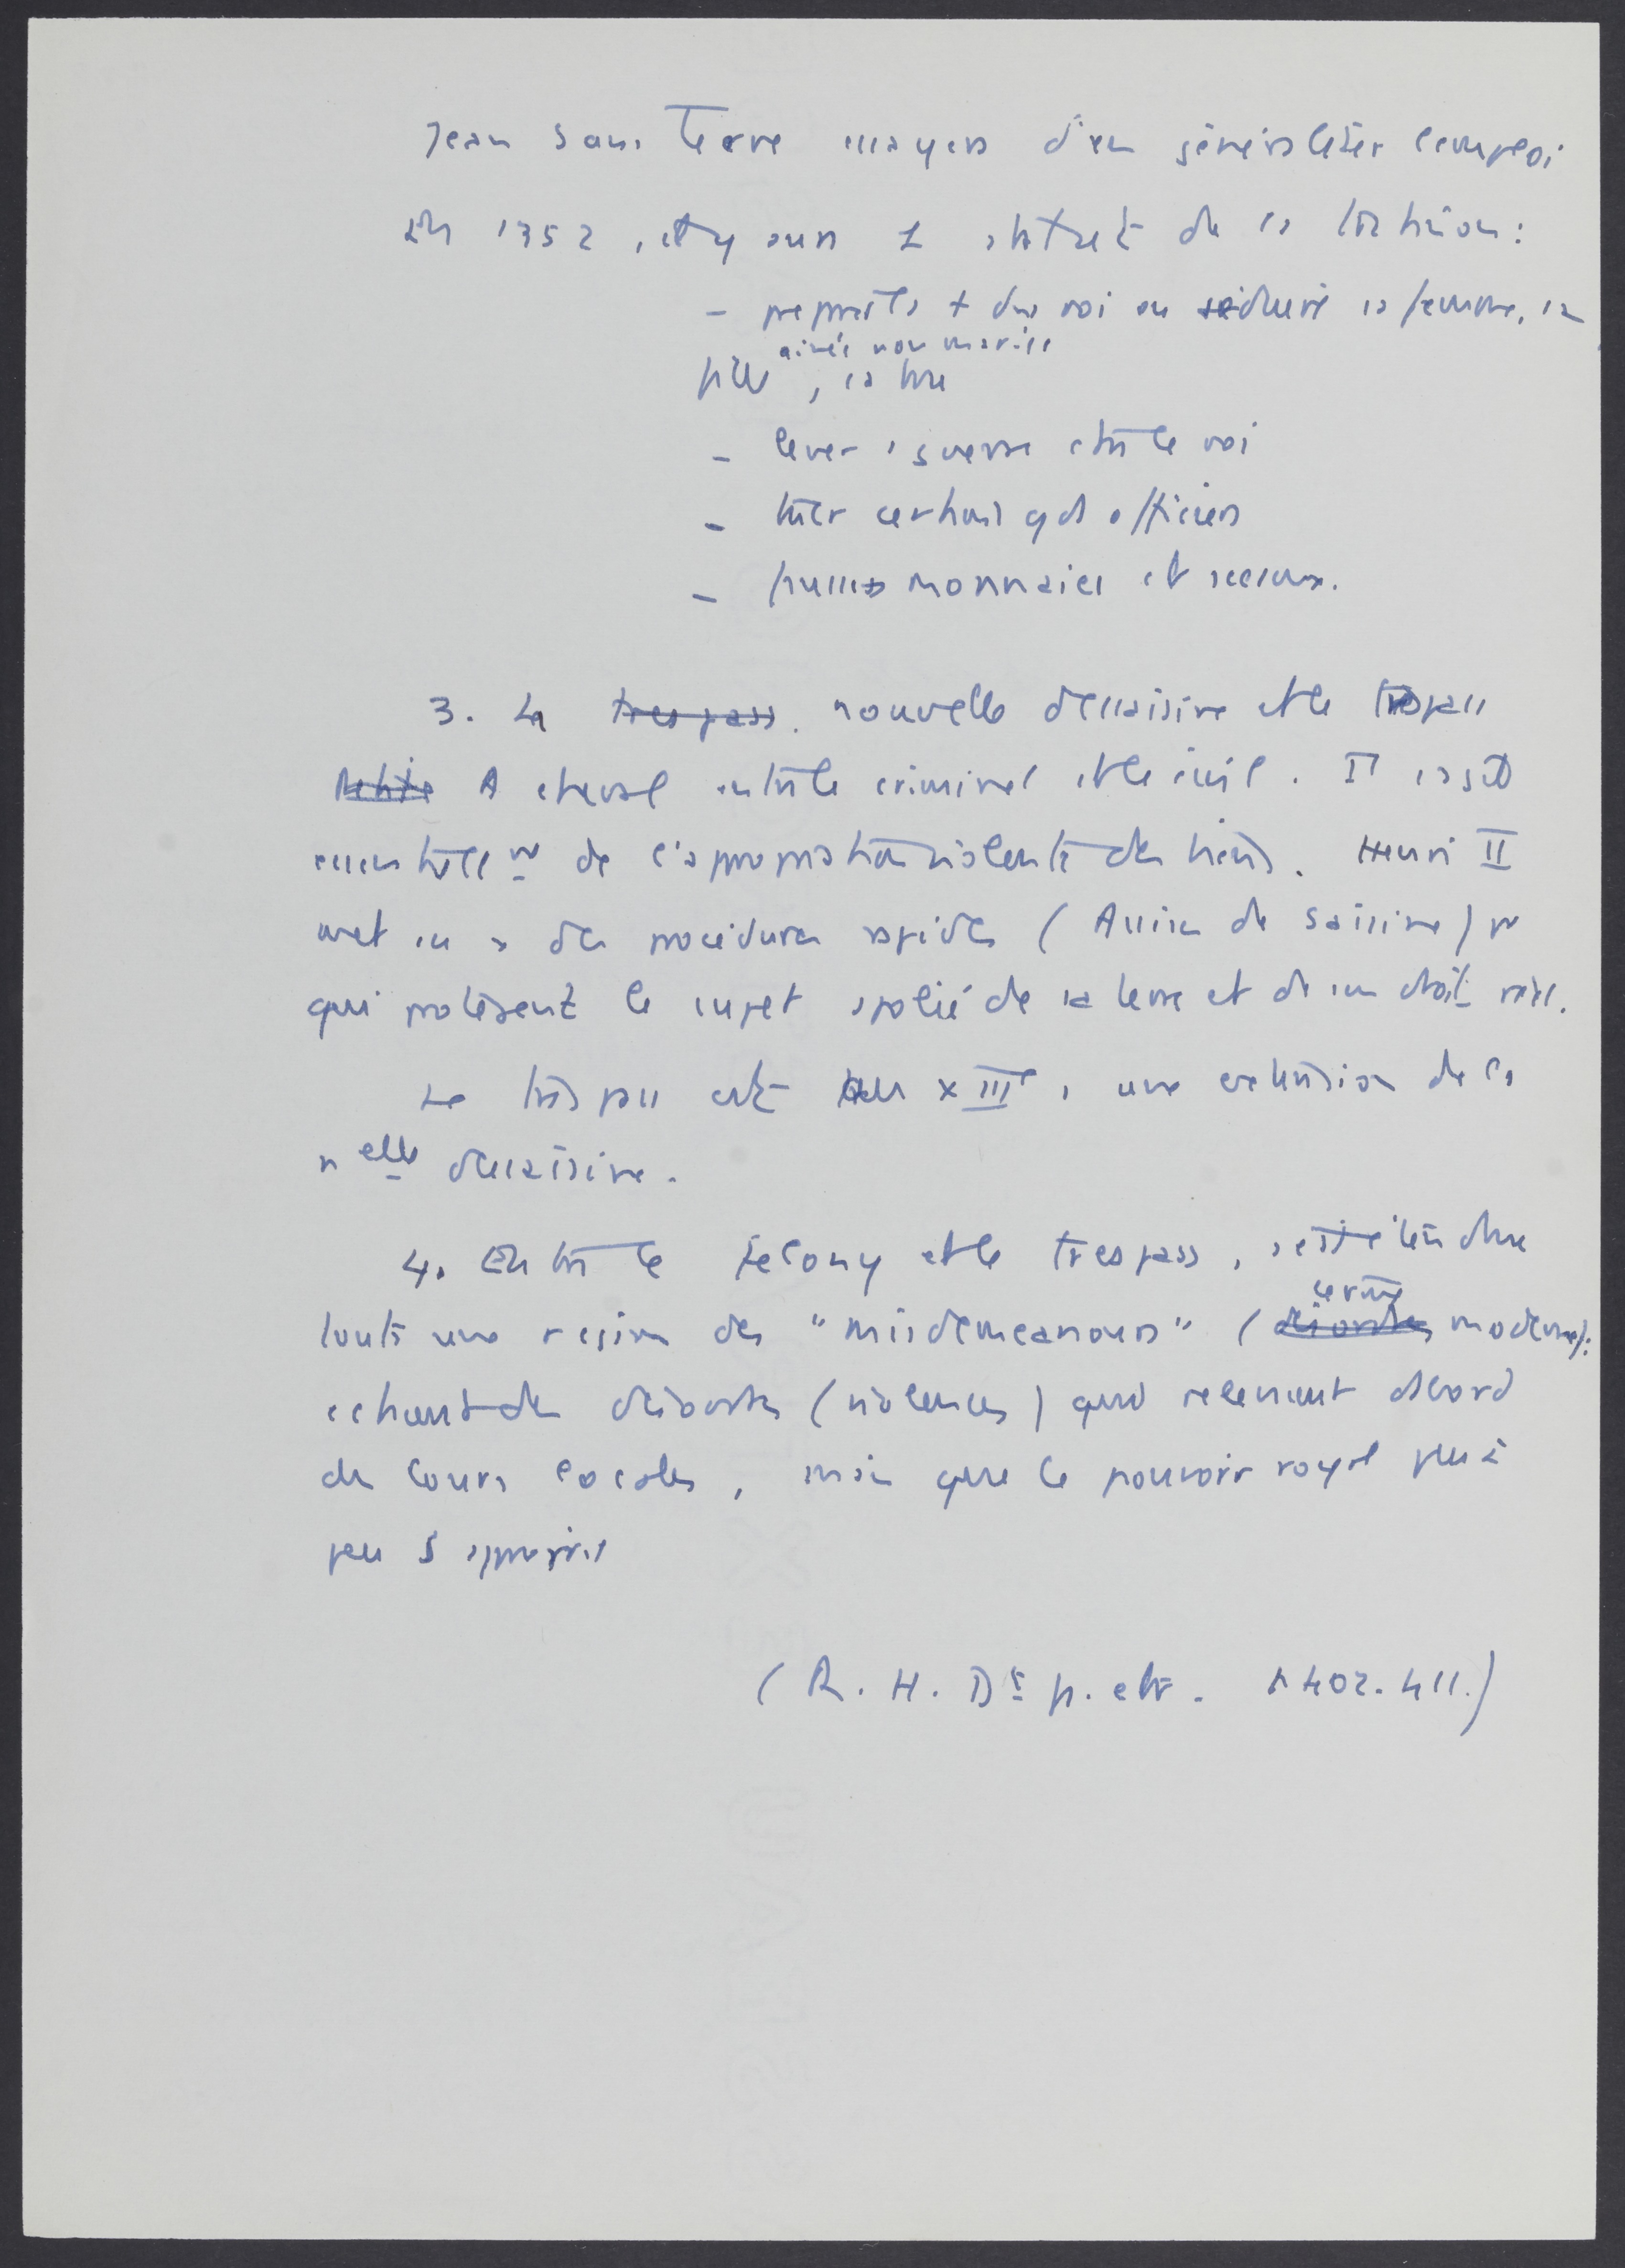 Jean Sans Terre essayera d'en généraliser l'emploi
En 1352, il y aura 1 statut de la trahison :
- préparer la † du roi ou séduire sa femme, sa
fille aînée non mariée, sa bru
- lever la guerre contre le roi
- tuer certains gds officiers
- fausses monnaies et sceaux.
3. La trespass. nouvelle dessaisine et le trespass
A cheval entre le criminel et le civil. Il s'agit
essentiellement de l'appropriation violente des biens. Henri II
met en des procédures rapides (Assises de saisine)
qui protègent le sujet spolié de sa terre et de son droit réel.
Le trespass est au XIIIe s, une extension de la
nelle dessaisine.
4. Entre le felony et le trespass, va s'étendre
toute une région des "misdemeanours" (terme moderne) :
ce sont des désordres (violences) qui relevaient d'abord
des cours locales, mais que le pouvoir royal peu à
peu s'approprie
(R. H. Dt p. etr. p 402. 411.)